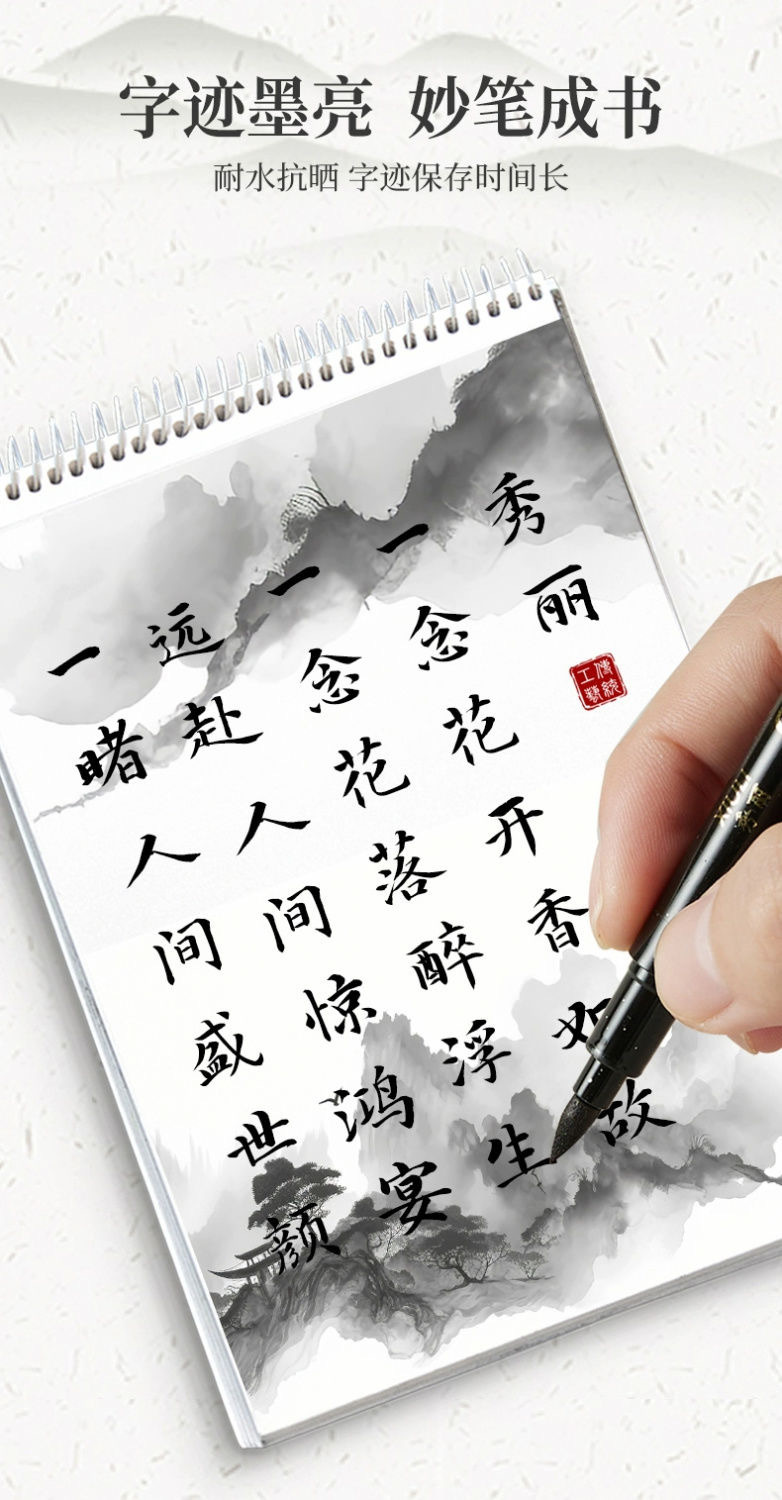 字迹墨亮 妙笔成书
耐水抗晒 字迹保存时间长
秀丽
傳統
工藝
一念花开香如故
一念花落醉浮生
远赴人间惊鸿宴
一睹人间盛世颜